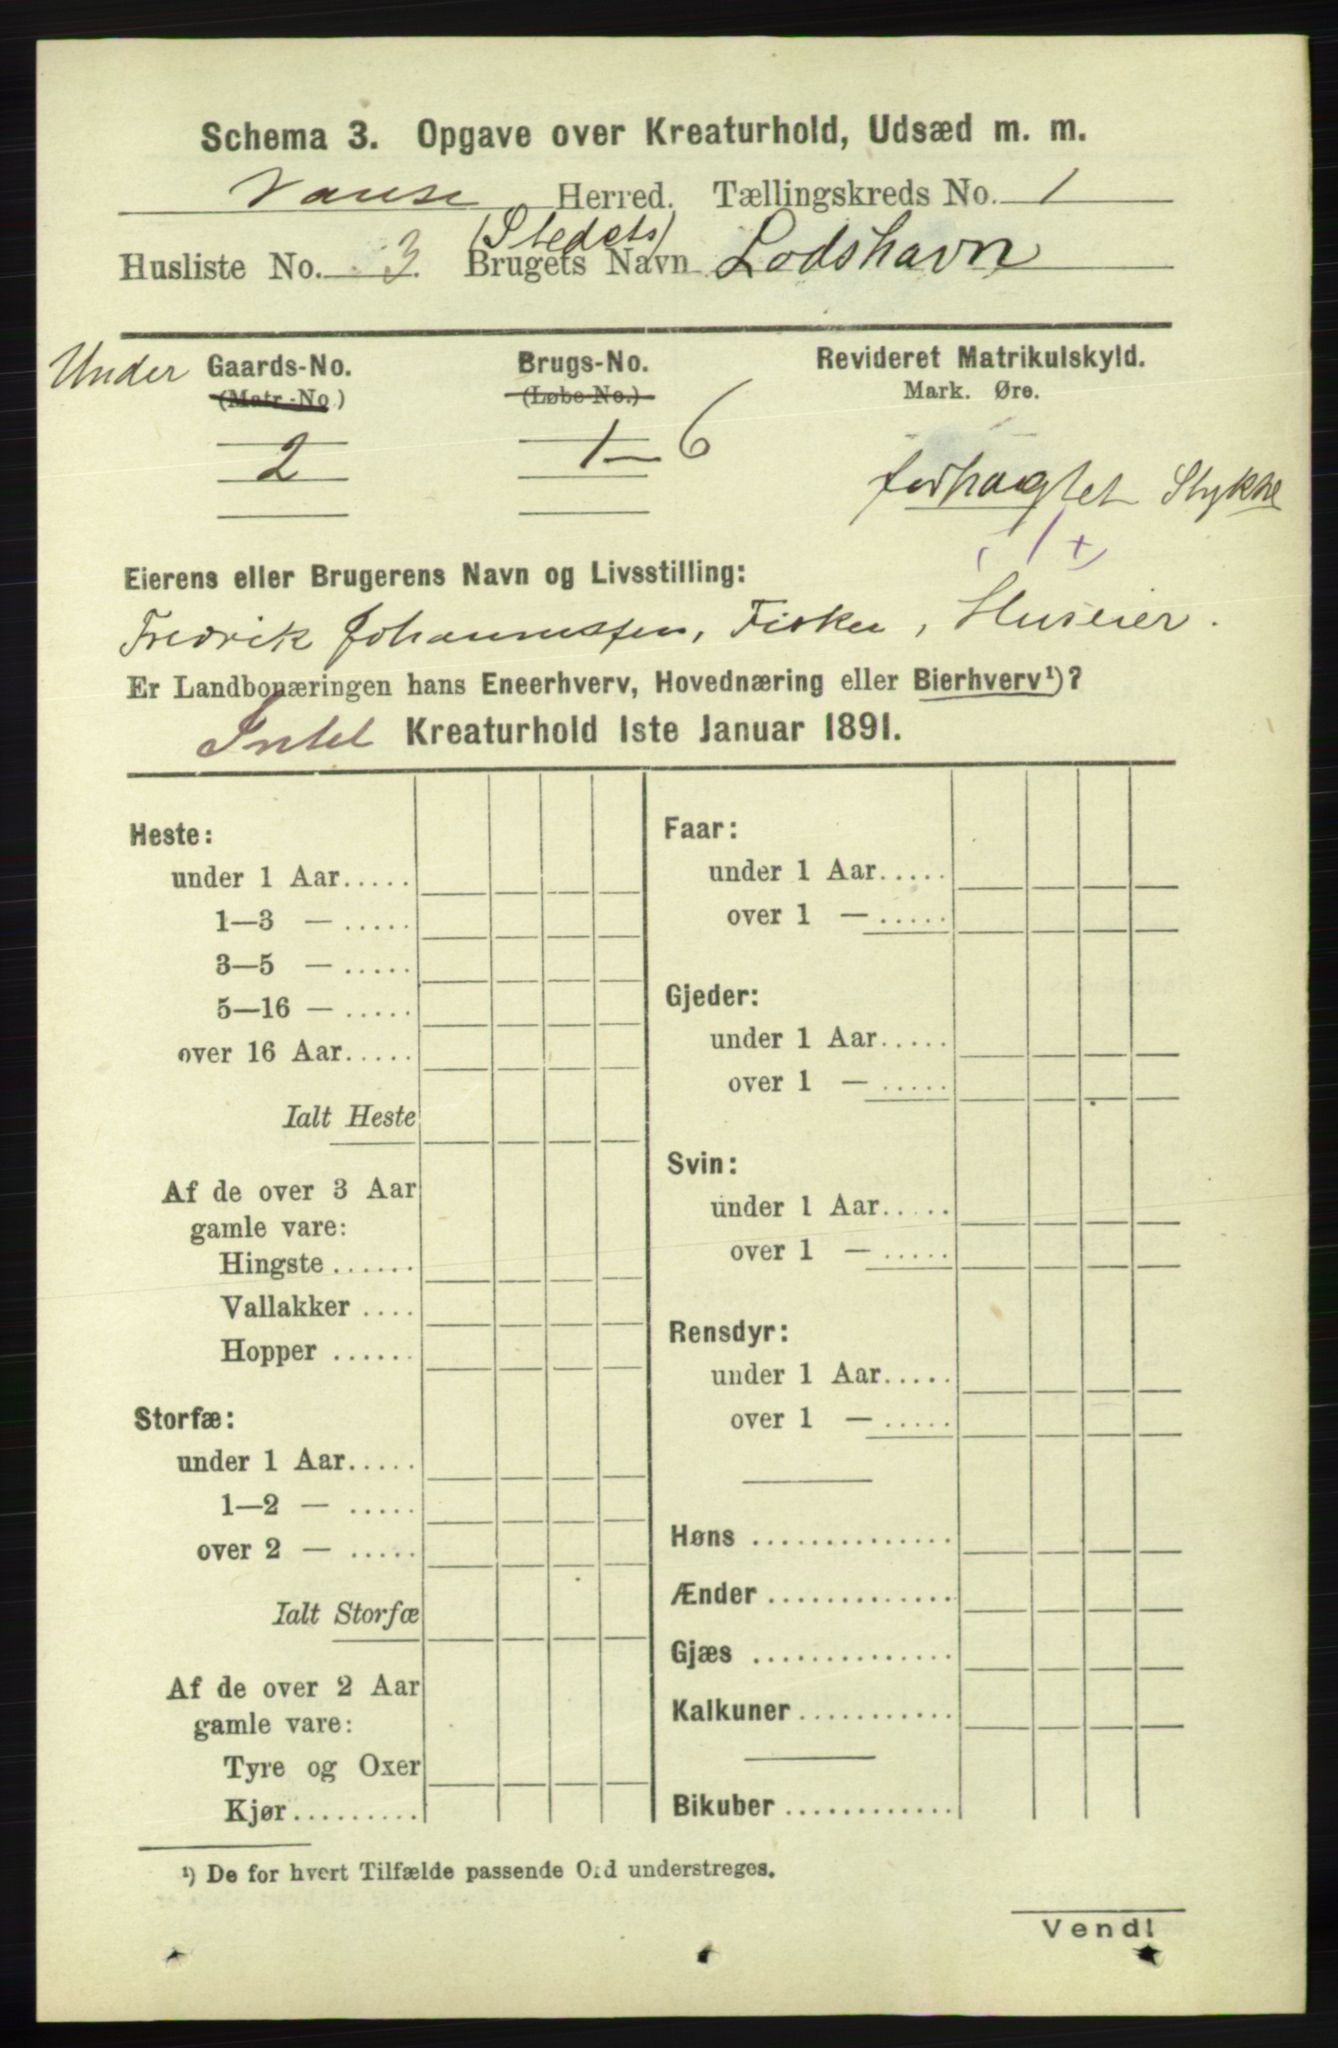 Schema 3. Opgave over Kreaturhold, Udsæd m. m.
Vanse Herred. Tællingskreds No. 1
(Stedets)
Husliste No. 3. Brugets Navn Lodshavn
Under Gaards-No. Brugs-No. Revideret Matrikulskyld.
(Matr.-No) (Løbe-No.) Mark. Øre.
2 1-6
forpagtet Stykke
1 +
Eierens eller Brugerens Navn og Livsstilling:
Fredrik Johannessen, Fisker, Huseier.
Er Landbonæringen hans Eneerhverv, Hovednæring eller Bierhverv¹)?
Intet Kreaturhold 1ste Januar 1891.
Heste:
under 1 Aar.....
1—3 — .....
3—5 — .....
5—16 — .....
over 16 Aar.....
Ialt Heste
Af de over 3 Aar
gamle vare:
Hingste ......
Vallakker ....
Hopper ......
Storfæ:
under 1 Aar.....
1—2 — .....
over 2 — .....
Ialt Storfæ
Af de over 2 Aar
gamle vare:
Tyre og Oxer
Kjør.........
Faar:
under 1 Aar.....
over 1 — .....
Gjeder:
under 1 Aar.....
over 1 — .....
Svin:
under 1 Aar.....
over 1 — .....
Rensdyr:
under 1 Aar.....
over 1 — .....
Høns ..............
Ænder .............
Gjæs ..............
Kalkuner...........
Bikuber ............
¹) De for hvert Tilfælde passende Ord understreges.
Vend!